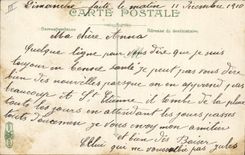 Dimanche matin 11 Décembre 1910
CARTE POSTALE
Correspondance
Adresse du destinataire
Ma chère Anna
Quelque ligne pour vous dire que je suis
toujours en bonne santé je peut pas vous dire
bien des nouvelles parque on en apprend pas
beaucoup a St Etienne il tombe de la pluie
tout les jours en attendant les jours passes
tout doucement je vous envoy mon amitier
et bien des Baiser
Celui que ne vous oublie pas Jules